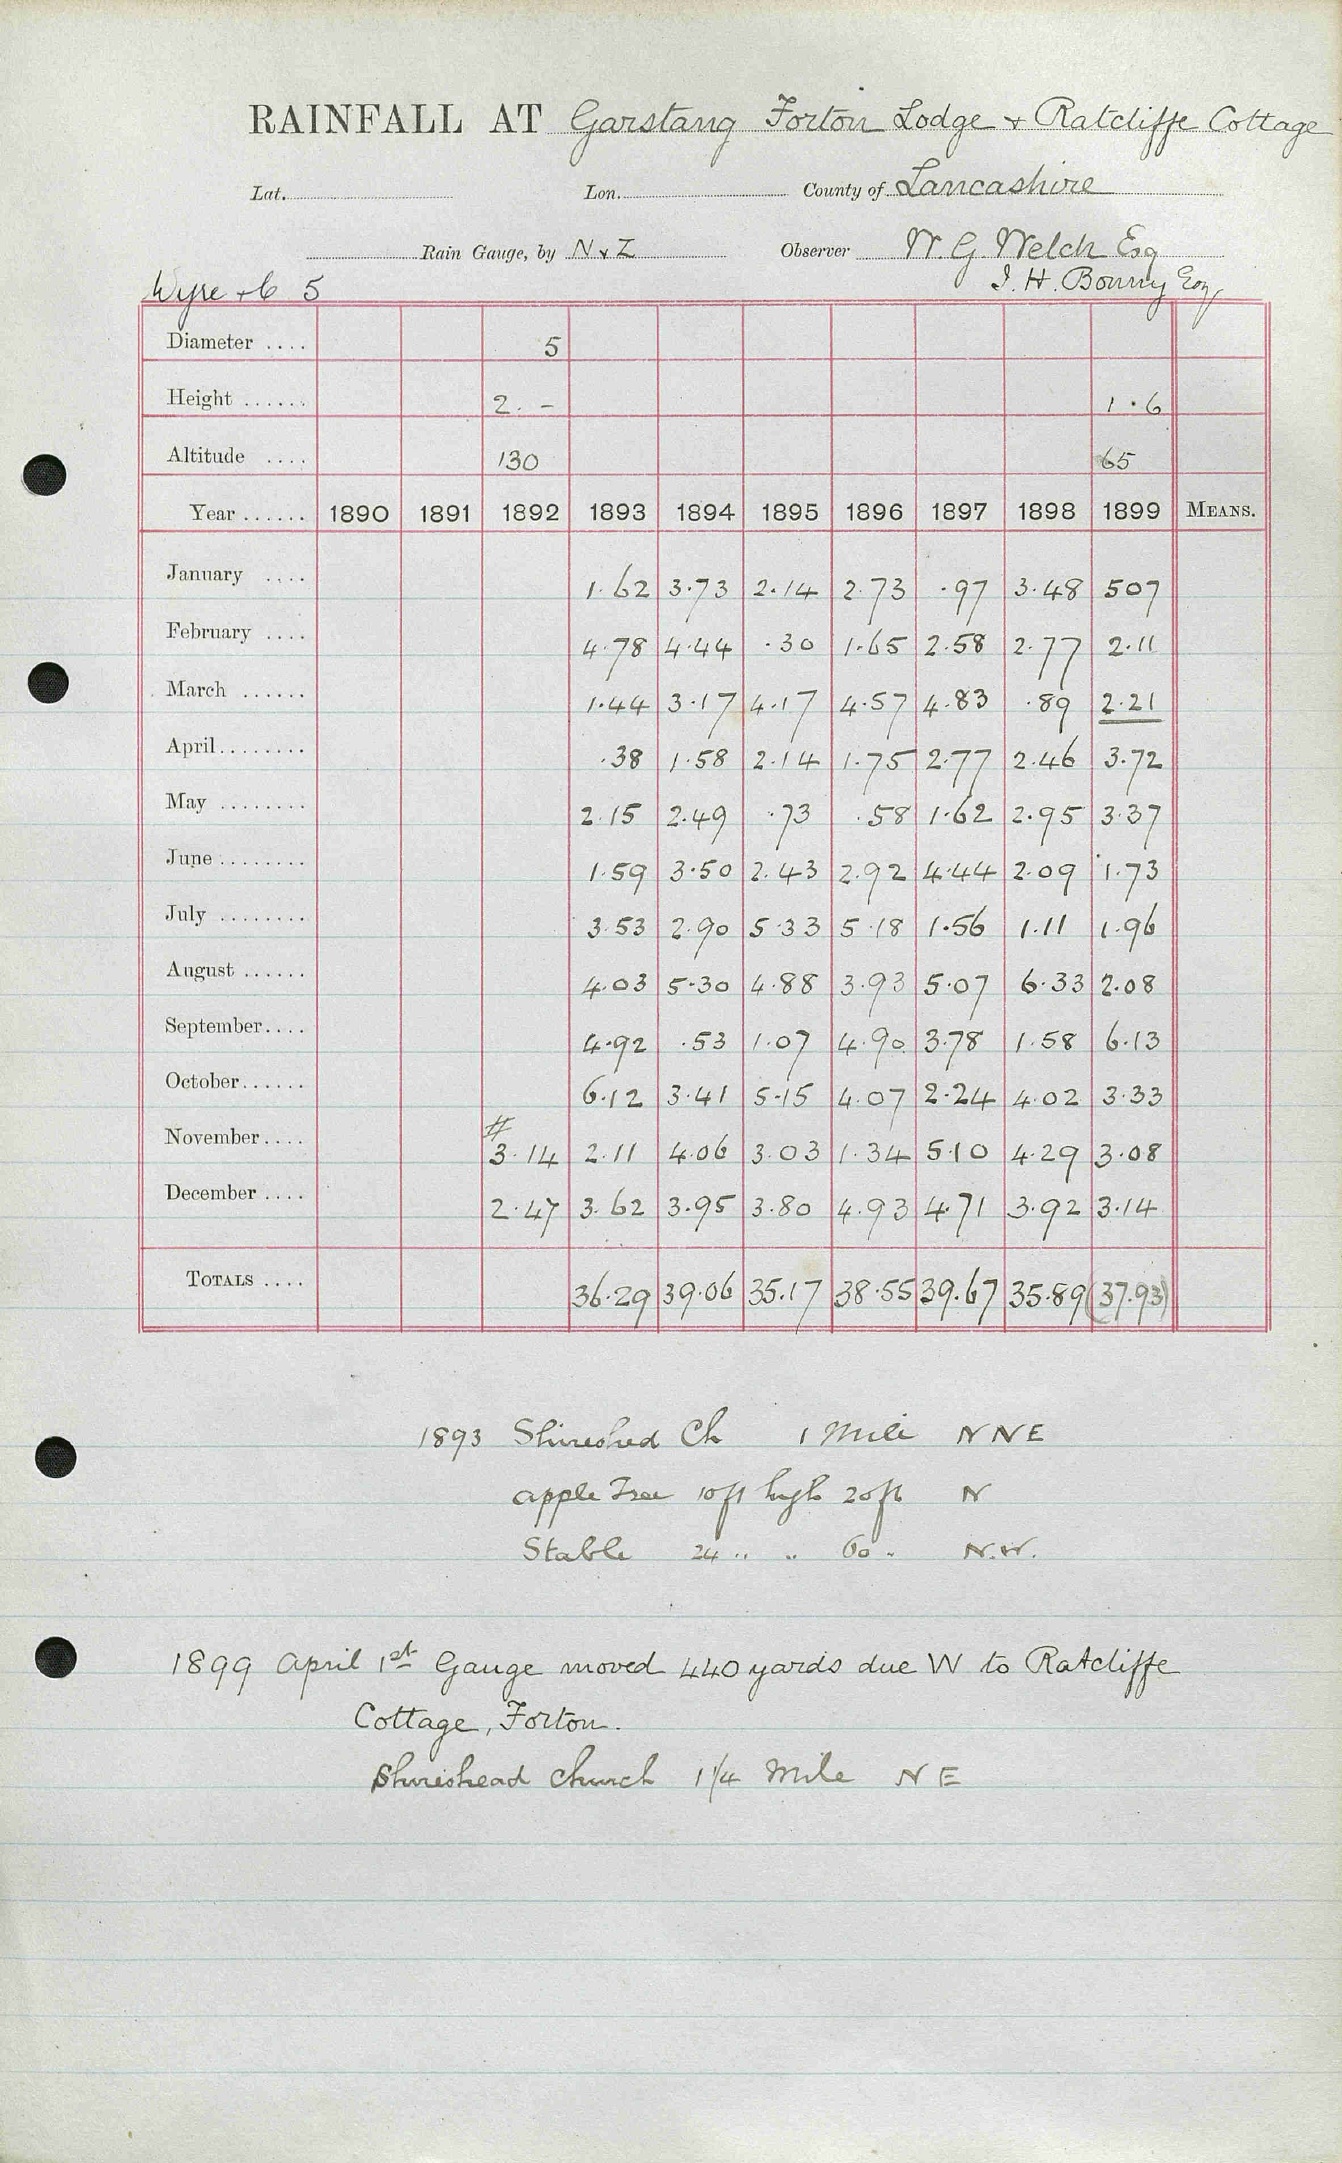 RAINFALL AT Garstang Forton Lodge & Ratcliffe Cottage
Lat. Lon. County of Lancashire
Rain Gauge, by N & Z Observer W. G. Welch Esq
Wyre &c 5 I. H. Bonny Esq
Diameter .... 5
Height ...... 2. - 1.6
Altitude .... 130 65
Year ...... 1890 1891 1892 1893 1894 1895 1896 1897 1898 1899 MEANS.
January .... 1.62 3.73 2.14 2.73 .97 3.48 507
February .... 4.78 4.44 .30 1.65 2.58 2.77 2.11
March ...... 1.44 3.17 4.17 4.57 4.83 .89 2.21
April ........ .38 1.58 2.14 1.75 2.77 2.46 3.72
May ........ 2.15 2.49 .73 .58 1.62 2.95 3.37
June ........ 1.59 3.50 2.43 2.92 4.44 2.09 1.73
July ........ 3.53 2.90 5.33 5.18 1.56 1.11 1.96
August ...... 4.03 5.30 4.88 3.93 5.07 6.33 2.08
September.... 4.92 .53 1.07 4.90 3.78 1.58 6.13
October...... 6.12 3.41 5.15 4.07 2.24 4.02 3.33
November.... # 3.14 2.11 4.06 3.03 1.34 5.10 4.29 3.08
December .... 2.47 3.62 3.95 3.80 4.93 4.71 3.92 3.14
TOTALS .... 36.29 39.06 35.17 38.55 39.67 35.89 (37.93)
1893 Shireshed Ch 1 Mile NNE
apple Tree 10ft high 20ft N
Stable 24 " " 60 " N.W.
1899 April 1st Gauge moved 440 yards due W to Ratcliffe
Cottage, Forton.
Shireshead church 1 1/4 Mile NE